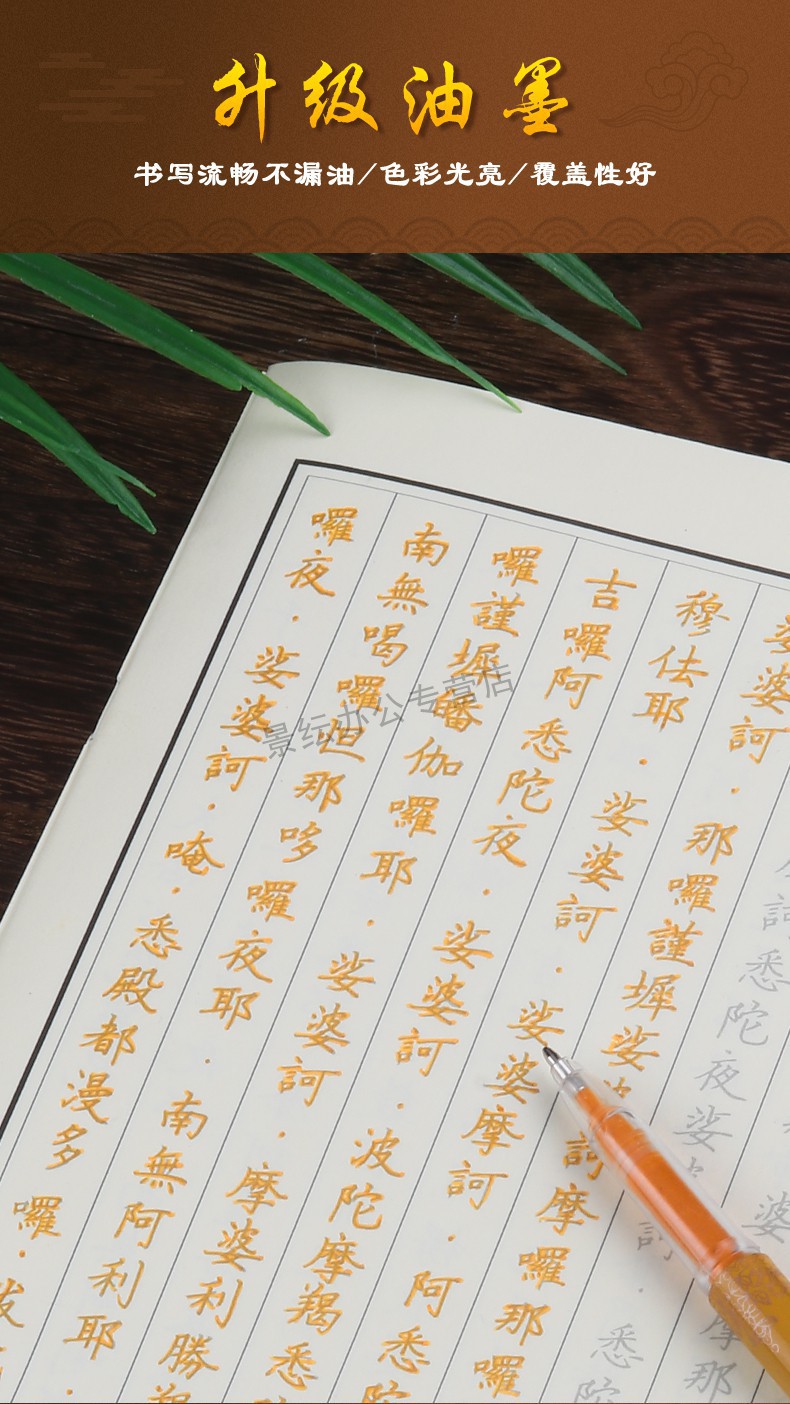 升级油墨
书写流畅不漏油/色彩光亮/覆盖性好
婆
摩那
訶悉陀夜娑
訶·悉陀
娑婆訶·那囉謹墀娑婆訶摩囉那囉
穆佉耶·娑婆訶·娑婆摩訶·阿悉陀
吉囉阿悉陀夜·娑婆訶·波陀摩羯悉
囉謹墀皤伽囉耶·娑婆訶·摩婆利勝羯
南無喝囉怛那哆囉夜耶·南無阿利耶·
囉夜·娑婆訶·唵·悉殿都漫多囉·跋
景纭办公专营店